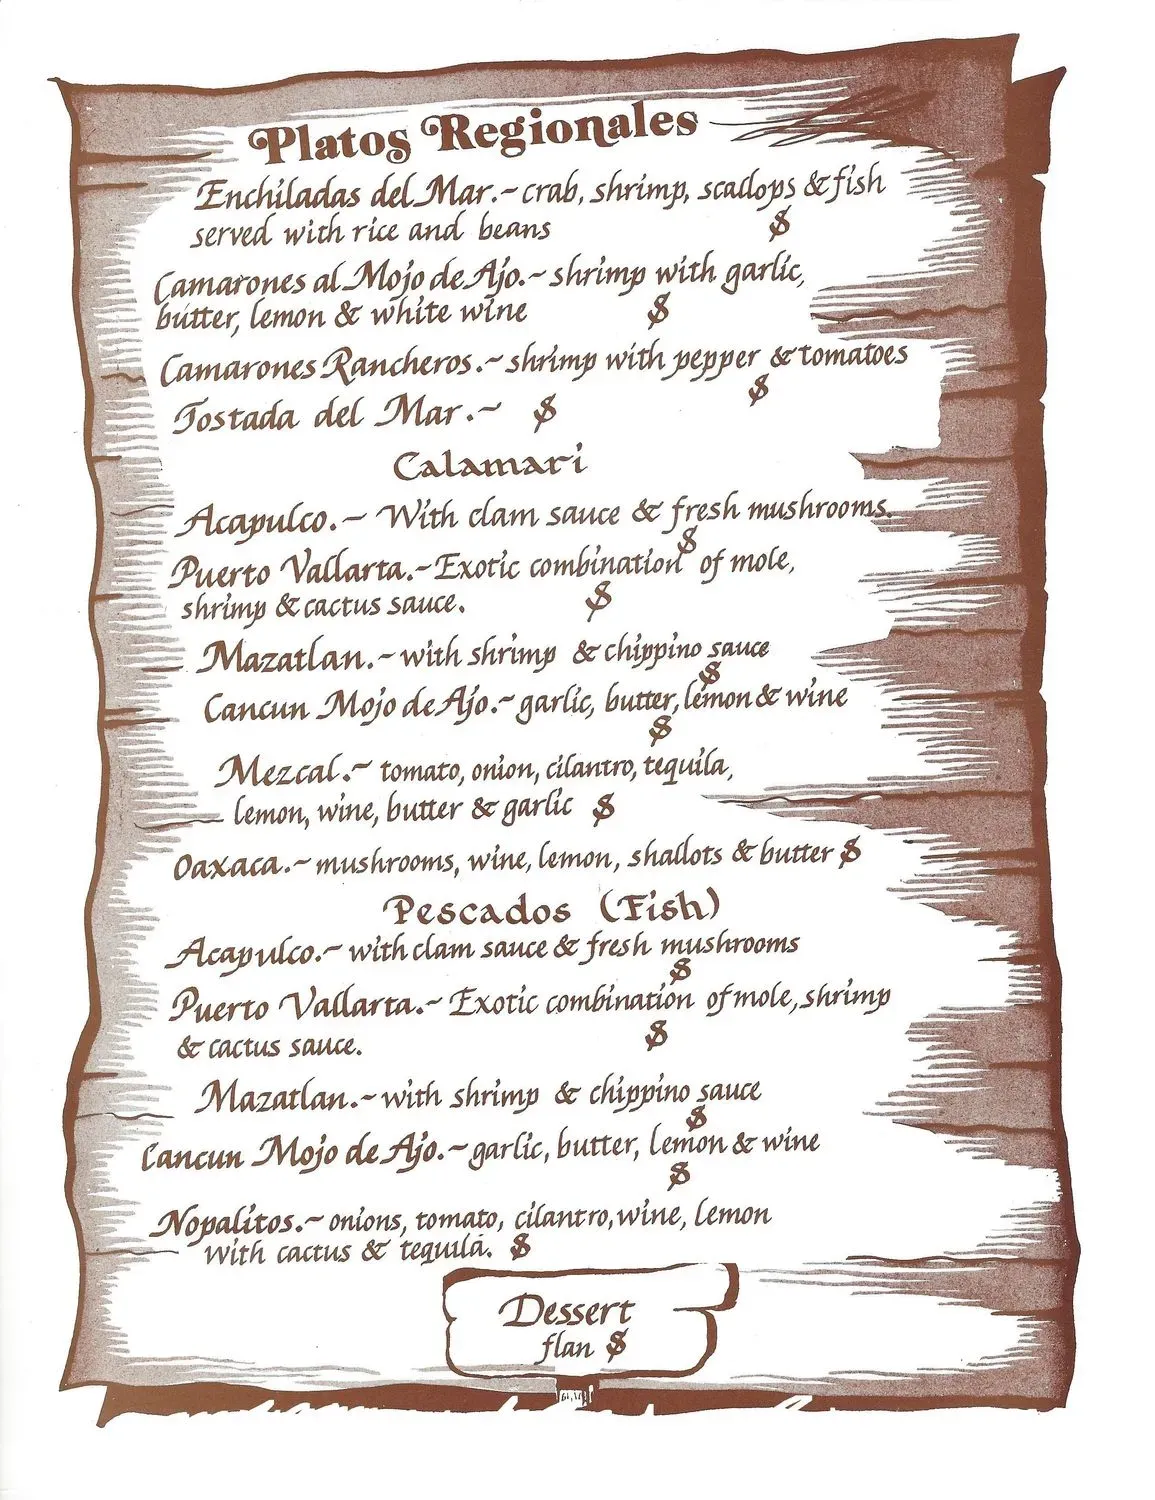 Platos Regionales
Enchiladas del Mar.~ crab, shrimp, scallops & fish
served with rice and beans $
Camarones al Mojo de Ajo.~ shrimp with garlic,
butter, lemon & white wine $
Camarones Rancheros.~ shrimp with pepper & tomatoes
$
Tostada del Mar.~ $
Calamari
Acapulco.~ With clam sauce & fresh mushrooms.
$
Puerto Vallarta.~ Exotic combination of mole,
shrimp & cactus sauce. $
Mazatlan.~ with shrimp & chippino sauce
$
Cancun Mojo de Ajo.~ garlic, butter, lemon & wine
$
Mezcal.~ tomato, onion, cilantro, tequila,
lemon, wine, butter & garlic $
Oaxaca.~ mushrooms, wine, lemon, shallots & butter $
Pescados (Fish)
Acapulco.~ with clam sauce & fresh mushrooms
$
Puerto Vallarta.~ Exotic combination of mole, shrimp
& cactus sauce. $
Mazatlan.~ with shrimp & chippino sauce
$
Cancun Mojo de Ajo.~ garlic, butter, lemon & wine
$
Nopalitos.~ onions, tomato, cilantro, wine, lemon
with cactus & tequila. $
Dessert
flan $